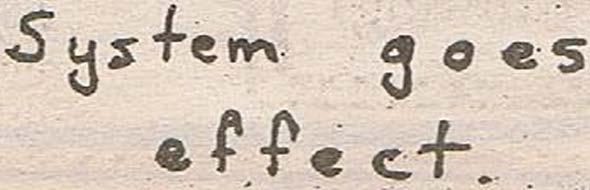 System goes
effect.